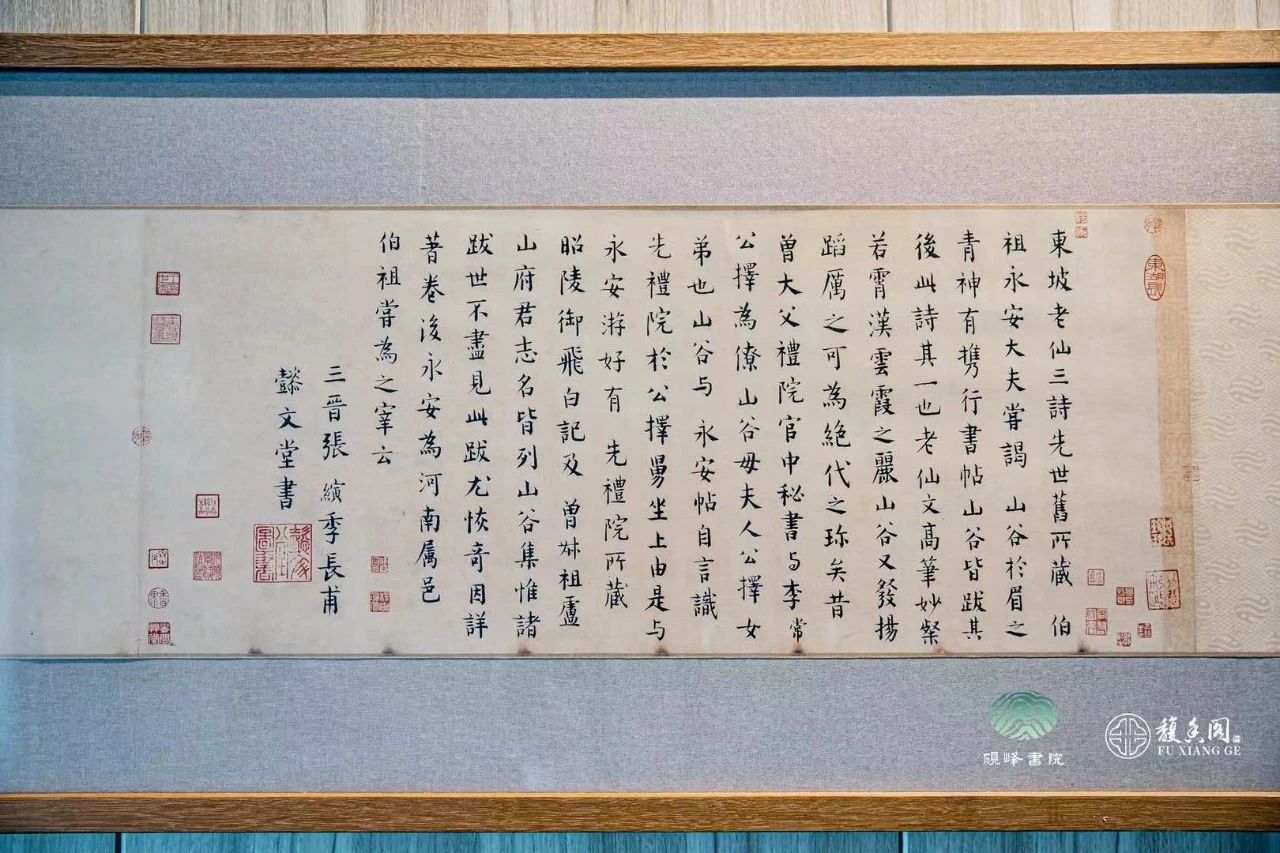 東坡老仙三詩先世舊所藏 伯
祖永安大夫嘗謁 山谷於眉之
青神有攜行書帖山谷皆跋其
後此詩其一也老仙文高筆妙粲
若霄漢雲霞之麗山谷又發揚
蹈厲之可為絕代之珎矣昔
曾大父禮院官中秘書与李常
公擇為僚山谷母夫人公擇女
弟也山谷与 永安帖自言識
先禮院於公擇舅坐上由是与
永安游好有 先禮院所藏
昭陵御飛白記及 曾叔祖盧
山府君志名皆列山谷集惟諸
跋世不盡見此跋尤恢奇因詳
著卷後永安為河南屬邑
伯祖嘗為之宰云
三晉張縯季長甫
懿文堂書
硯峰書院
馥香阁
FU XIANG GE